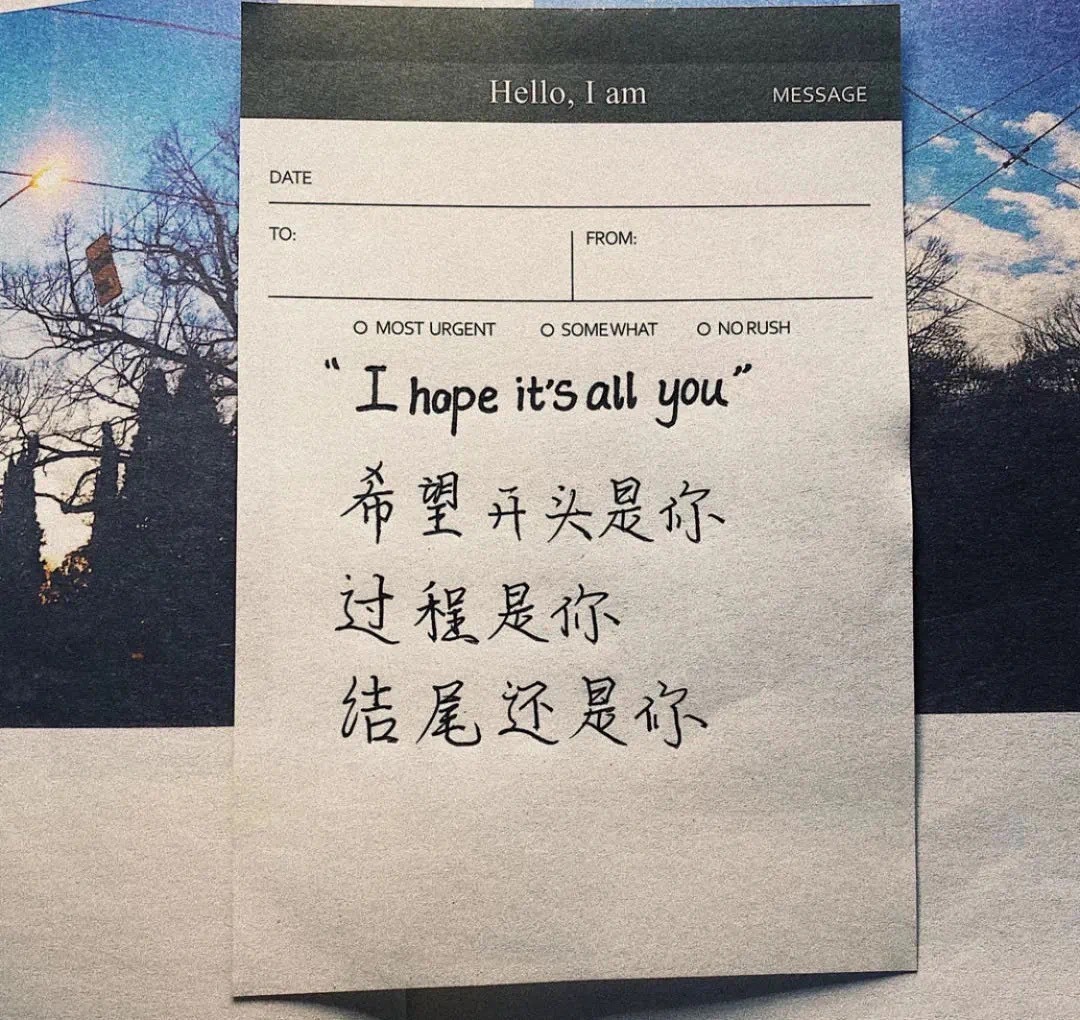 Hello, I am MESSAGE
DATE
TO: FROM:
O MOST URGENT O SOMEWHAT O NO RUSH
“I hope it's all you”
希望开头是你
过程是你
结尾还是你